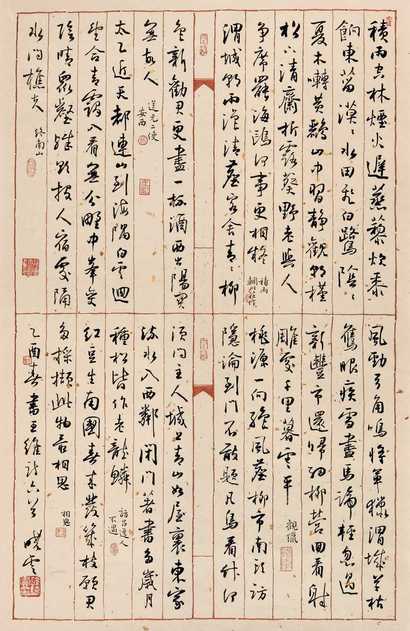 積雨空林煙火遲蒸藜炊黍
餉東菑漠漠水田飛白鷺陰陰
夏木囀黃鸝山中習静觀朝槿
松下清齋折露葵野老與人
争席罷海鷗何事更相疑 積雨輞川莊作
渭城朝雨浥輕塵客舍青青柳
色新勸君更盡一杯酒西出陽關
無故人 送元二使安西
太乙近天都連山到海隅白雲迴
望合青靄入看無分野中峯變
陰晴衆壑殊欲投人宿處隔
水問樵夫 終南山
風勁弓角鳴將軍獵渭城草枯
鷹眼疾雪盡馬蹄輕忽過
新豐市還歸細柳營回看射
雕處千里暮雲平 觀獵
桃源一向絶風塵柳市南頭訪
隱淪到門不敢題凡鳥看竹何
須問主人城上青山如屋裏東家
流水入西鄰閉門著書多歲月
種松皆作老龍鱗 訪吕逸人不遇
紅豆生南國春來發幾枝願君
多採擷此物最相思 相思
乙酉春書王維詩六首